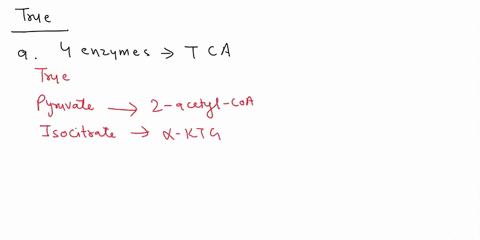 True
a. 4 enzymes → TCA
True
Pyruvate → 2-acetyl-CoA
Isocitrate → α-KTG